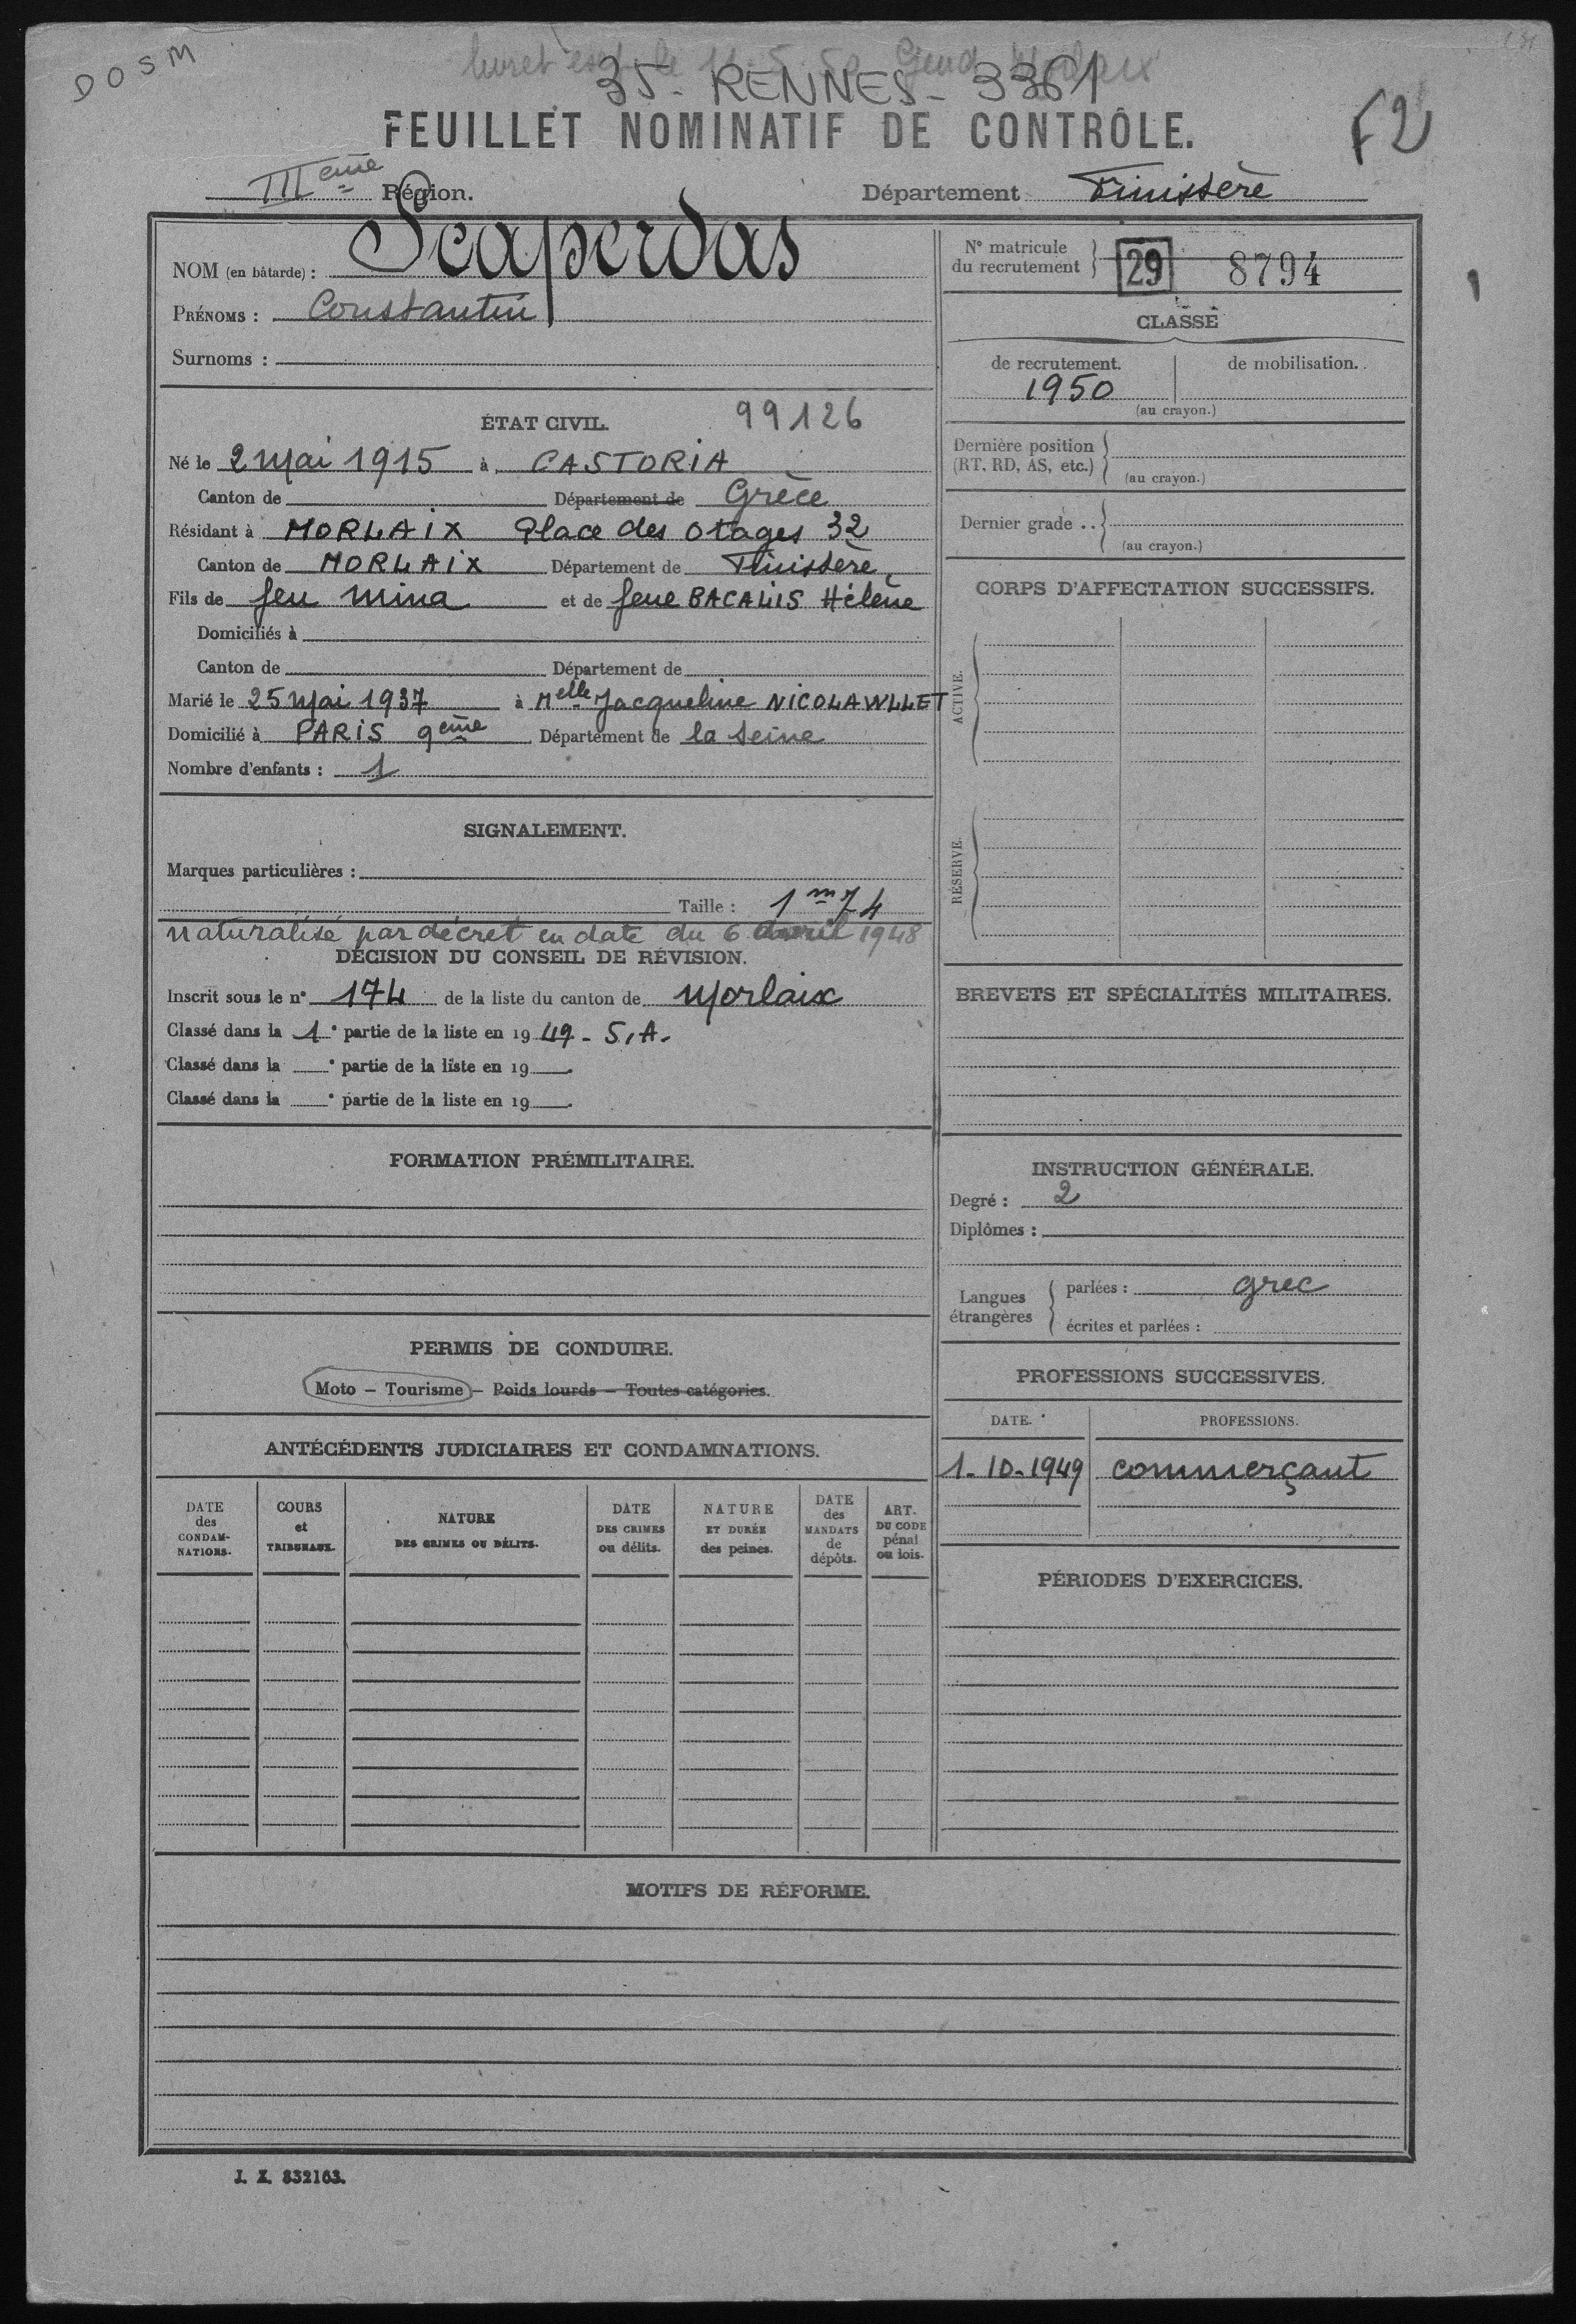 DOSM
livret le 11.5.50 Gend Morlaix
35 - RENNES - 3361
FEUILLET NOMINATIF DE CONTRÔLE.
F2
IIIème Région.
Département Finistère
NOM (en bâtarde) : Scaperdas
PRÉNOMS : Constantin
Surnoms :
ÉTAT CIVIL. 99126
Né le 2 Mai 1915 à CASTORIA
Canton de Département de Grèce
Résidant à MORLAIX Place des Otages 32
Canton de MORLAIX Département de Finistère
Fils de feu Mina et de feue BACALIS Hélène
Domiciliés à
Canton de Département de
Marié le 25 Mai 1937 à Melle Jacqueline
Domicilié à PARIS 9ème Département de la Seine
Nombre d'enfants : 1
SIGNALEMENT.
Marques particulières :
Taille : 1m74
naturalisé par décret en date du 6 avril 1948
DÉCISION DU CONSEIL DE RÉVISION.
Inscrit sous le n° 174 de la liste du canton de Morlaix
Classé dans la 1e partie de la liste en 1949 - S.A.
Classé dans la e partie de la liste en 19
Classé dans la e partie de la liste en 19
FORMATION PRÉMILITAIRE.
PERMIS DE CONDUIRE.
Moto – Tourisme – Poids lourds – Toutes catégories.
ANTÉCÉDENTS JUDICIAIRES ET CONDAMNATIONS.
DATE des CONDAMNATIONS.
COURS et TRIBUNAUX.
NATURE DES CRIMES OU DÉLITS.
DATE DES CRIMES ou délits.
NATURE ET DURÉE des peines.
DATE des MANDATS de dépôts.
ART. DU CODE pénal ou lois.
N° matricule du recrutement 29 8794
CLASSE
de recrutement. de mobilisation.
1950
(au crayon.)
Dernière position
(RT, RD, AS, etc.)
(au crayon.)
Dernier grade ..
(au crayon.)
CORPS D'AFFECTATION SUCCESSIFS.
ACTIVE.
RÉSERVE.
BREVETS ET SPÉCIALITÉS MILITAIRES.
INSTRUCTION GÉNÉRALE.
Degré : 2
Diplômes :
Langues étrangères
parlées : grec
écrites et parlées :
PROFESSIONS SUCCESSIVES.
DATE. PROFESSIONS.
1-10-1949 commerçant
PÉRIODES D'EXERCICES.
MOTIFS DE RÉFORME.
J. X. 832163.